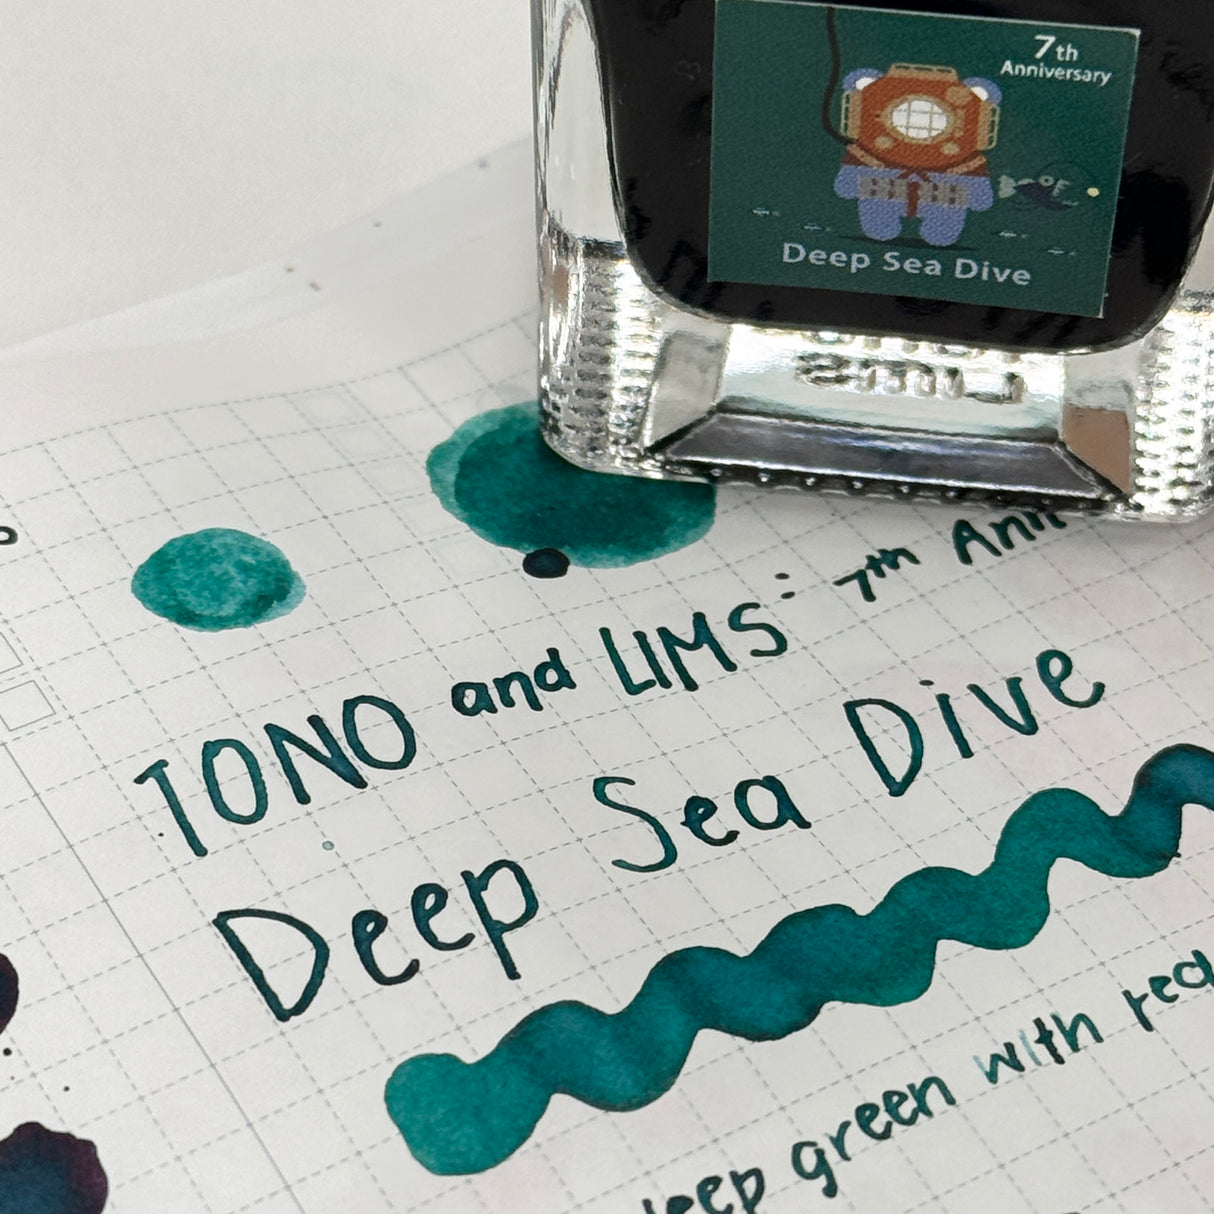 7th
Anniversary
Deep Sea Dive
LIMS
TONO and LIMS: 7th Ann
Deep Sea Dive
deep green with red